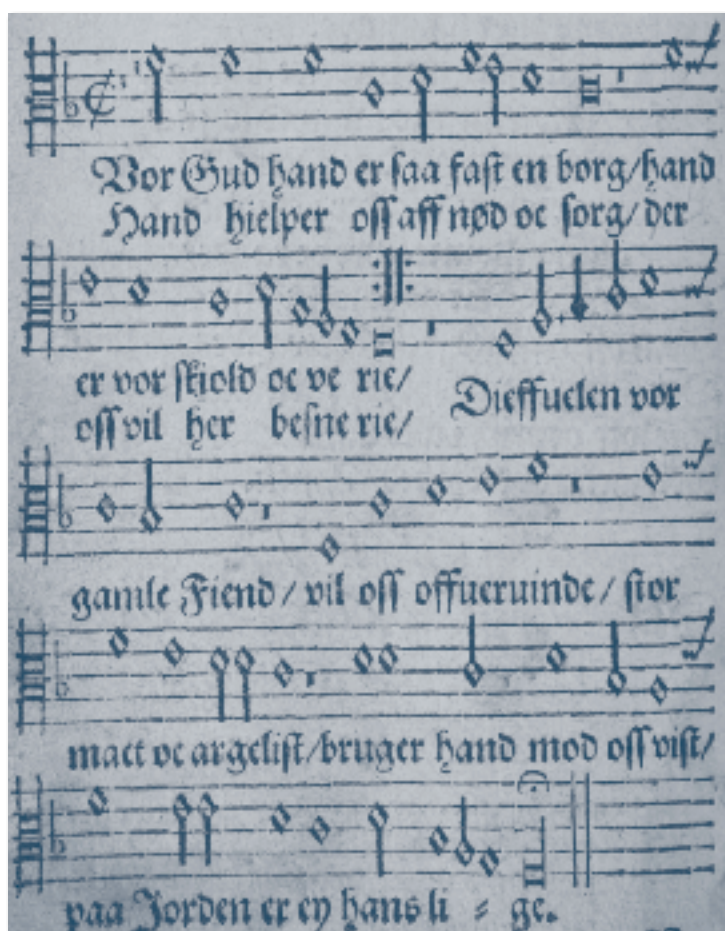 Vor Gud hand er saa fast en borg/hand
Hand hielper oss aff nød oc sorg/ der
er vor skiold oc ve rie/ Dieffuelen vor
oss vil her besne rie/
gamle Fiend/ vil oss offueruinde/ stor
mact oc argelist/bruger hand mod oss vist/
paa Jorden er ey hans li ⸗ ge.